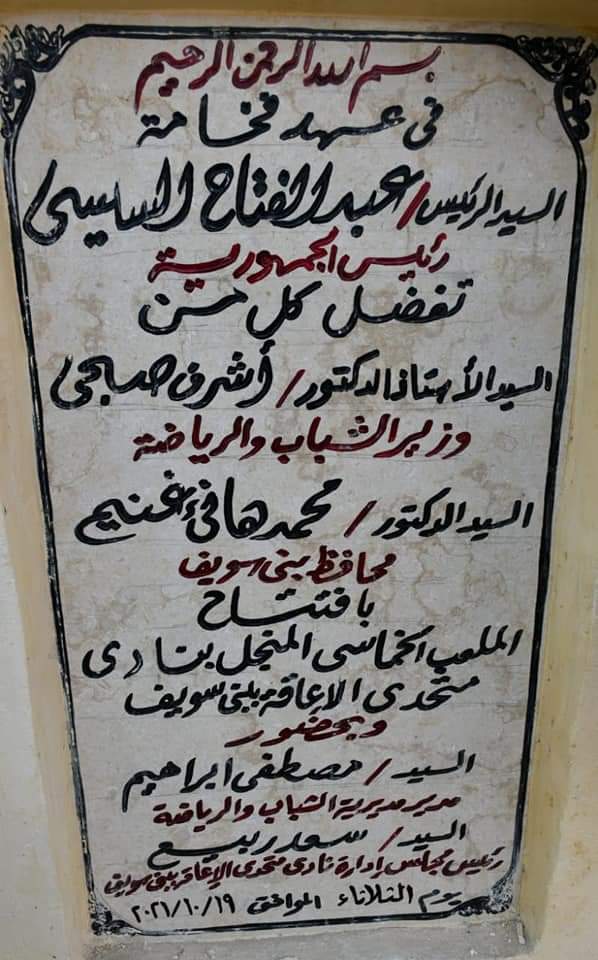 بسم الله الرحمن الرحيم
فى عهد فخامة
السيد الرئيس / عبد الفتاح السيسى
رئيس الجمهورية
تفضل كل من
السيد الأستاذ الدكتور / أشرف صبحى
وزير الشباب والرياضة
السيد الدكتور / محمد هانى غنيم
محافظ بنى سويف
بافتتاح
الملعب الخماسى المنجل بنادى
متحدى الإعاقة ببنى سويف
وبحضور
السيد / مصطفى ابراهيم
مدير مديرية الشباب والرياضة
السيد / سعد ربيع
رئيس مجلس إدارة نادى متحدى الإعاقة ببنى سويف
يوم الثلاثاء الموافق ٢٠٢١/١٠/١٩